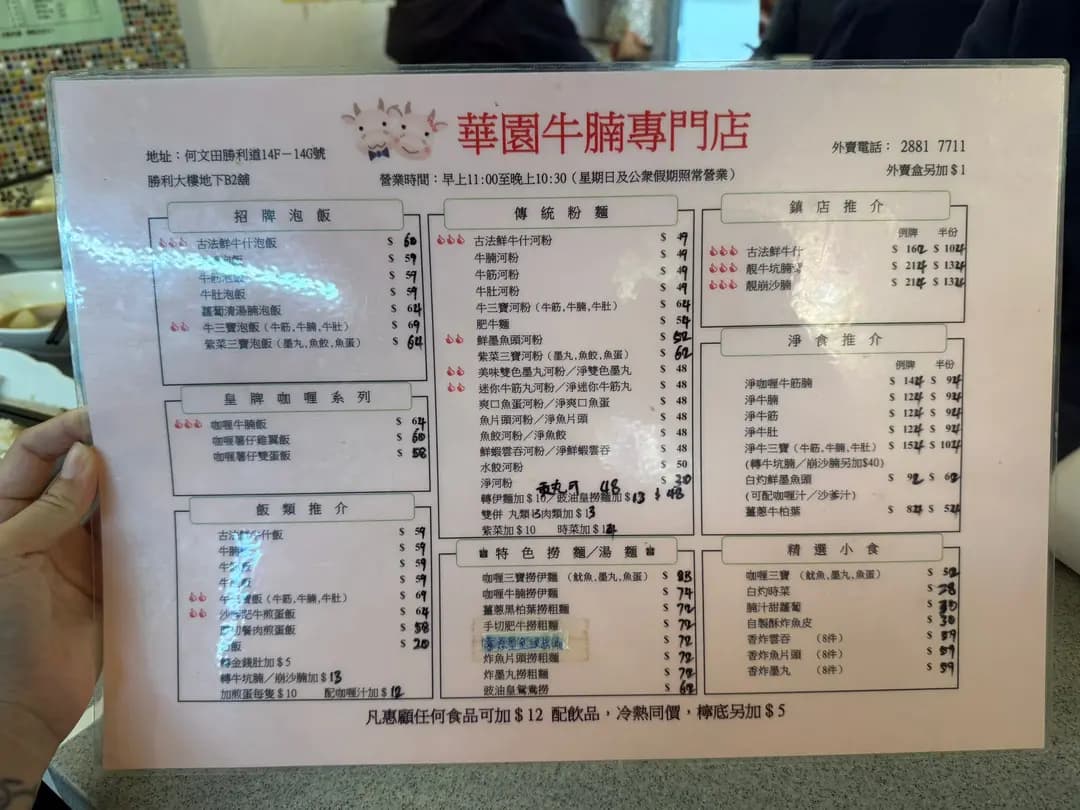 華園牛腩專門店
地址：何文田勝利道14F－14G號
勝利大樓地下B2舖
營業時間：早上11:00至晚上10:30（星期日及公衆假期照常營業）
外賣電話： 2881 7711
外賣盒另加＄1
招牌泡飯
古法鮮牛什泡飯 $ 60
泡飯 $ 59
牛筋泡飯 $ 59
牛肚泡飯 $ 59
蘿蔔清湯腩泡飯 $ 64
牛三寶泡飯（牛筋,牛腩,牛肚） $ 69
紫菜三寶泡飯（墨丸,魚餃,魚蛋） $ 64
皇牌咖喱系列
咖喱牛腩飯 $ 64
咖喱薯仔雞翼飯 $ 60
咖喱薯仔雙蛋飯 $ 58
飯類推介
古法鮮牛什飯 $ 59
牛腩 $ 59
牛 $ 59
牛 $ 59
牛三寶飯（牛筋,牛腩,牛肚） $ 69
沙嗲肥牛煎蛋飯 $ 64
切餐肉煎蛋飯 $ 58
飯 $ 20
金錢肚加＄5
轉牛坑腩／崩沙腩加＄13
加煎蛋每隻＄10 配咖喱汁加＄12
傳統粉麵
古法鮮牛什河粉 $ 49
牛腩河粉 $ 49
牛筋河粉 $ 49
牛肚河粉 $ 49
牛三寶河粉（牛筋,牛腩,牛肚） $ 64
肥牛麵 $ 54
鮮墨魚頭河粉 $ 52
紫菜三寶河粉（墨丸,魚餃,魚蛋） $ 62
美味雙色墨丸河粉／淨雙色墨丸 $ 48
迷你牛筋丸河粉／淨迷你牛筋丸 $ 48
爽口魚蛋河粉／淨爽口魚蛋 $ 48
魚片頭河粉／淨魚片頭 $ 48
魚餃河粉／淨魚餃 $ 48
鮮蝦雲吞河粉／淨鮮蝦雲吞 $ 48
水餃河粉 $ 50
淨河粉 $ 20
丸可 48 $ 48
轉伊麵加＄10／豉油皇撈麵加＄13
雙併 丸類13肉類加＄13
紫菜加＄10 時菜加＄14
特色撈麵／湯麵
咖喱三寶撈伊麵 （魷魚,墨丸,魚蛋） $ 83
咖喱牛腩撈伊麵 $ 74
薑蔥黑柏葉撈粗麵 $ 72
手切肥牛撈粗麵 $ 72
$ 72
炸魚片頭撈粗麵 $ 72
炸墨丸撈粗麵 $ 72
豉油皇鴛鴦撈 $ 62
鎮店推介
例牌 半份
古法鮮牛什 $ 162 $ 104
靚牛坑腩 $ 214 $ 134
靚崩沙腩 $ 214 $ 134
淨食推介
例牌 半份
淨咖喱牛筋腩 $ 144 $ 94
淨牛腩 $ 124 $ 94
淨牛筋 $ 124 $ 94
淨牛肚 $ 124 $ 94
淨牛三寶（牛筋,牛腩,牛肚） $ 154 $ 104
(轉牛坑腩／崩沙腩另加$40)
白灼鮮墨魚頭 $ 92 $ 62
(可配咖喱汁／沙爹汁)
薑蔥牛柏葉 $ 84 $ 54
精選小食
咖喱三寶 （魷魚,墨丸,魚蛋） $ 52
白灼時菜 $ 28
腩汁甜蘿蔔 $ 30
自製酥炸魚皮 $ 30
香炸雲吞 （8件） $ 59
香炸魚片頭 （8件） $ 59
香炸墨丸 （8件） $ 59
凡惠顧任何食品可加＄12 配飲品，冷熱同價，檸底另加＄5